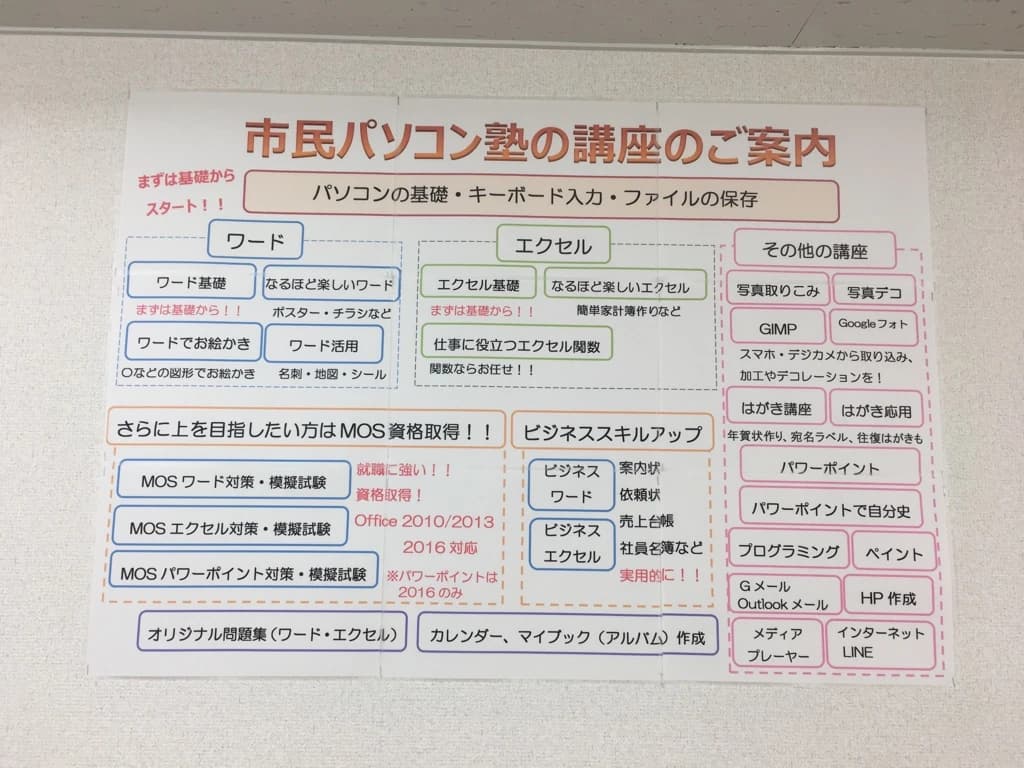 市民パソコン塾の講座のご案内
まずは基礎から
スタート！！
パソコンの基礎・キーボード入力・ファイルの保存
ワード
ワード基礎
なるほど楽しいワード
まずは基礎から！！
ポスター・チラシなど
ワードでお絵かき
ワード活用
〇などの図形でお絵かき
名刺・地図・シール
エクセル
エクセル基礎
なるほど楽しいエクセル
まずは基礎から！！
簡単家計簿作りなど
仕事に役立つエクセル関数
関数ならお任せ！！
さらに上を目指したい方はMOS資格取得！！
MOSワード対策・模擬試験
MOSエクセル対策・模擬試験
MOSパワーポイント対策・模擬試験
就職に強い！！
資格取得！
Office 2010/2013
2016対応
※パワーポイントは
2016のみ
ビジネススキルアップ
ビジネス
ワード
ビジネス
エクセル
案内状
依頼状
売上台帳
社員名簿など
実用的に！！
オリジナル問題集（ワード・エクセル）
カレンダー、マイブック（アルバム）作成
その他の講座
写真取りこみ
写真デコ
GIMP
Googleフォト
スマホ・デジカメから取り込み、
加工やデコレーションを！
はがき講座
はがき応用
年賀状作り、宛名ラベル、往復はがきも
パワーポイント
パワーポイントで自分史
プログラミング
ペイント
Gメール
Outlookメール
HP作成
メディア
プレーヤー
インターネット
LINE